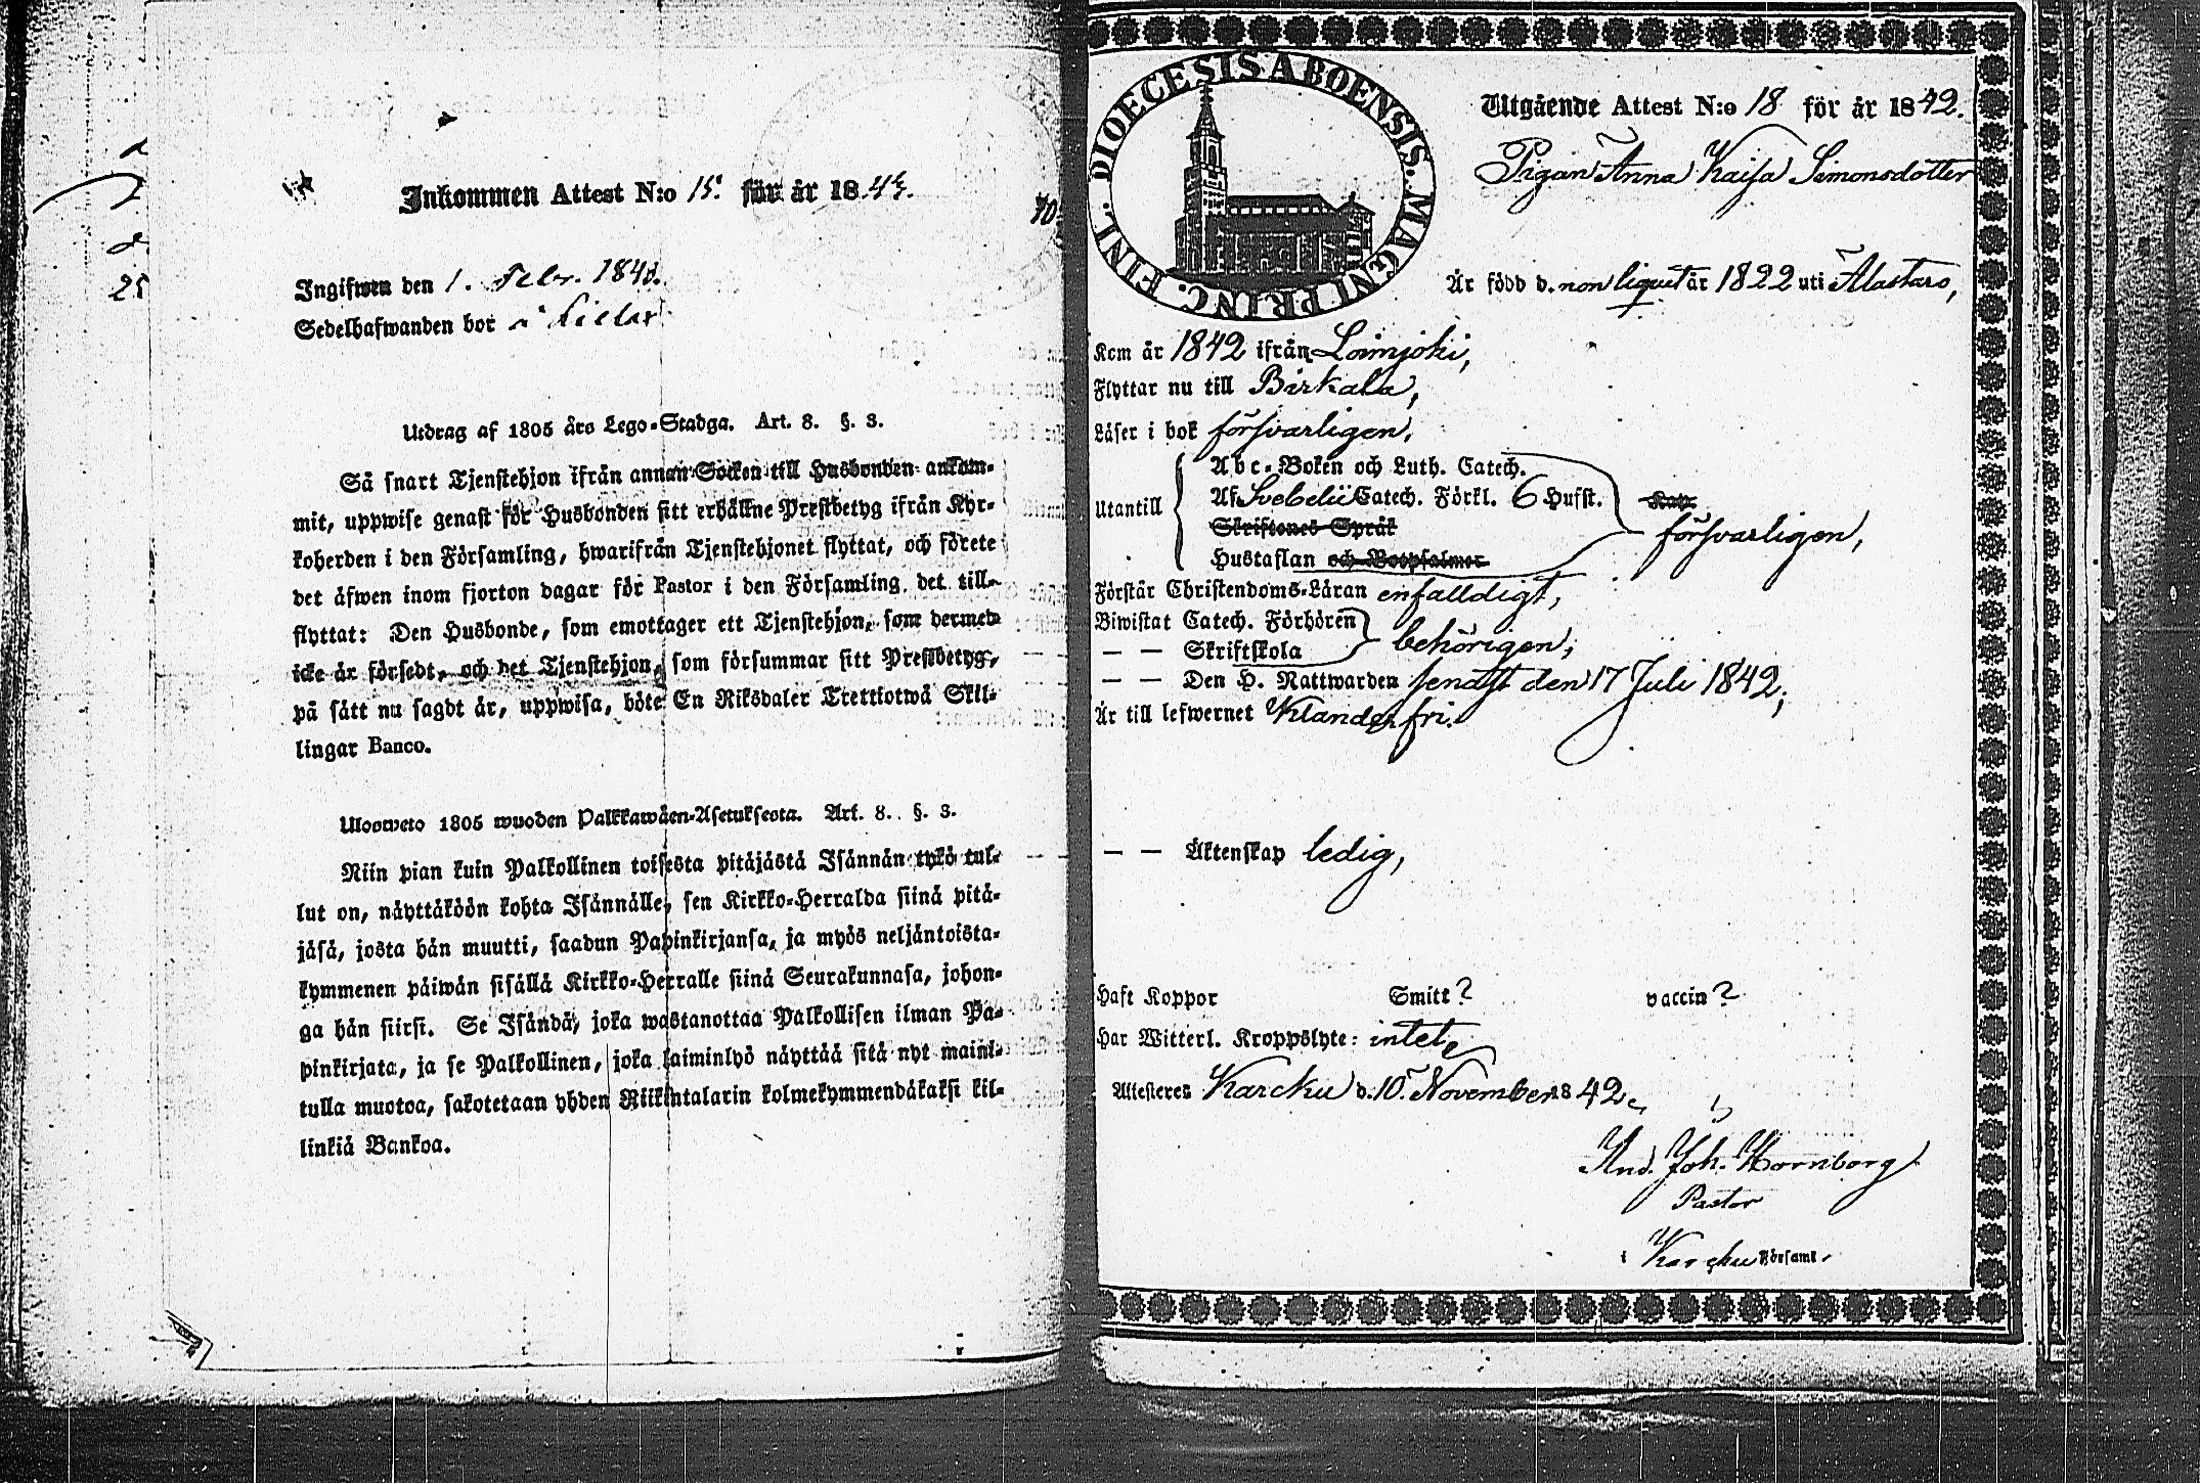 Inkommen Attest N:o 15. för år 184
Ingifwen den 1. Febr. 184
Sedelhafwanden bor
Utdrag af 1805 års Lego-Stadga. Art. 8. §. 3.
Så snart Tjenstehjon ifrån annan Socken till Husbonden ankom-
mit, uppwise genast för Husbonden sitt erhållne Prestbetyg ifrån Kyr-
koherden i den Församling, hwarifrån Tjenstehjonet flyttat, och förete
det äfwen inom fjorton dagar för Pastor i den Församling det till-
flyttat: Den Husbonde, som emottager ett Tjenstehjon, som dermed
icke är försedt, och det Tjenstehjon, som försummar sitt Prestbetyg,
på sått nu sagdt är, uppwisa, böte En Riksdaler Trettiotwå Skil-
lingar Banco.
Ulosweto 1805 wuoden Palkkawäen-Asetuksesta. Art. 8. §. 3.
Niin pian kuin Palkollinen toisesta pitäjästä Isännän tykö tul-
lut on, näyttäköön kohta Isännälle, sen Kirkko-Herralda siinä pitä-
jäsä, josta hän muutti, saadun Papinkirjansa, ja myös neljäntoista-
kymmenen päiwän sisällä Kirkko-Herralle siinä Seurakunnasa, johon-
ga hän siirsi. Se Isändä, joka wastanottaa Palkollisen ilman Pa-
pinkirjata, ja se Palkollinen, joka laiminlyö näyttää sitä nyt maini-
tulla muotoa, sakotetaan yhden Riikintalarin kolmekymmendäkaksi kil-
linkiä Bankoa.
DIOECESIS ABOENSIS. MAGNI PRINC. FINL.
Utgående Attest N:o 18 för år 1842.
Pigan Anna Kaisa Simonsdotter
Är född d. non liquet år 1822 uti Alastaro,
Kom år 1842 ifrån Loimjoki,
Flyttar nu till Birkala,
Läser i bok försvarligen,
Utantill
Abc-Boken och Luth. Catech.
Af Svebelii Catech. Förkl. 6 Hufst.
Skriftenes Språk
Hustaflan och Botpsalmer
försvarligen,
Förstår Christendoms-Läran enfalldigt,
Biwistat Catech. Förhören
— — Skriftskola
behörigen;
— — Den H. Nattwarden senast den 17 Juli 1842;
Är till lefwernet Klanderfri.
— — Äktenskap ledig,
Haft Koppor Smitt? vaccin?
Har Witterl. Kroppslyte: intet,
Attesteres Karcku d. 10. November 1842,
And. Joh. Hornborg
Pastor
i Karcku Församl.